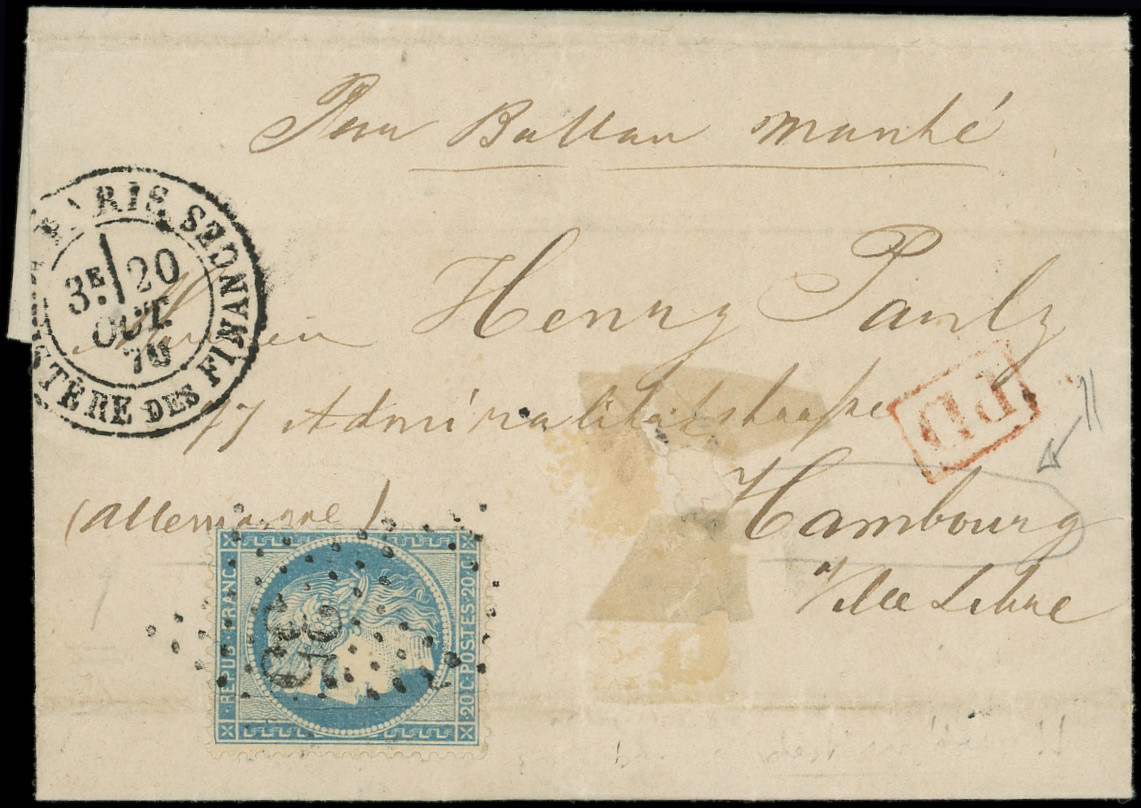 Par Ballon monté
PARIS. SEDNGES
MINISTÈRE DES FINANCES
3E 20
OCT.
70
Monsieur Henry Pauly
77 Admiralitätstrasse
PD
Hambourg
(Allemagne)
Ville Libre
REPUB·FRANC·
20·C·POSTES·20·